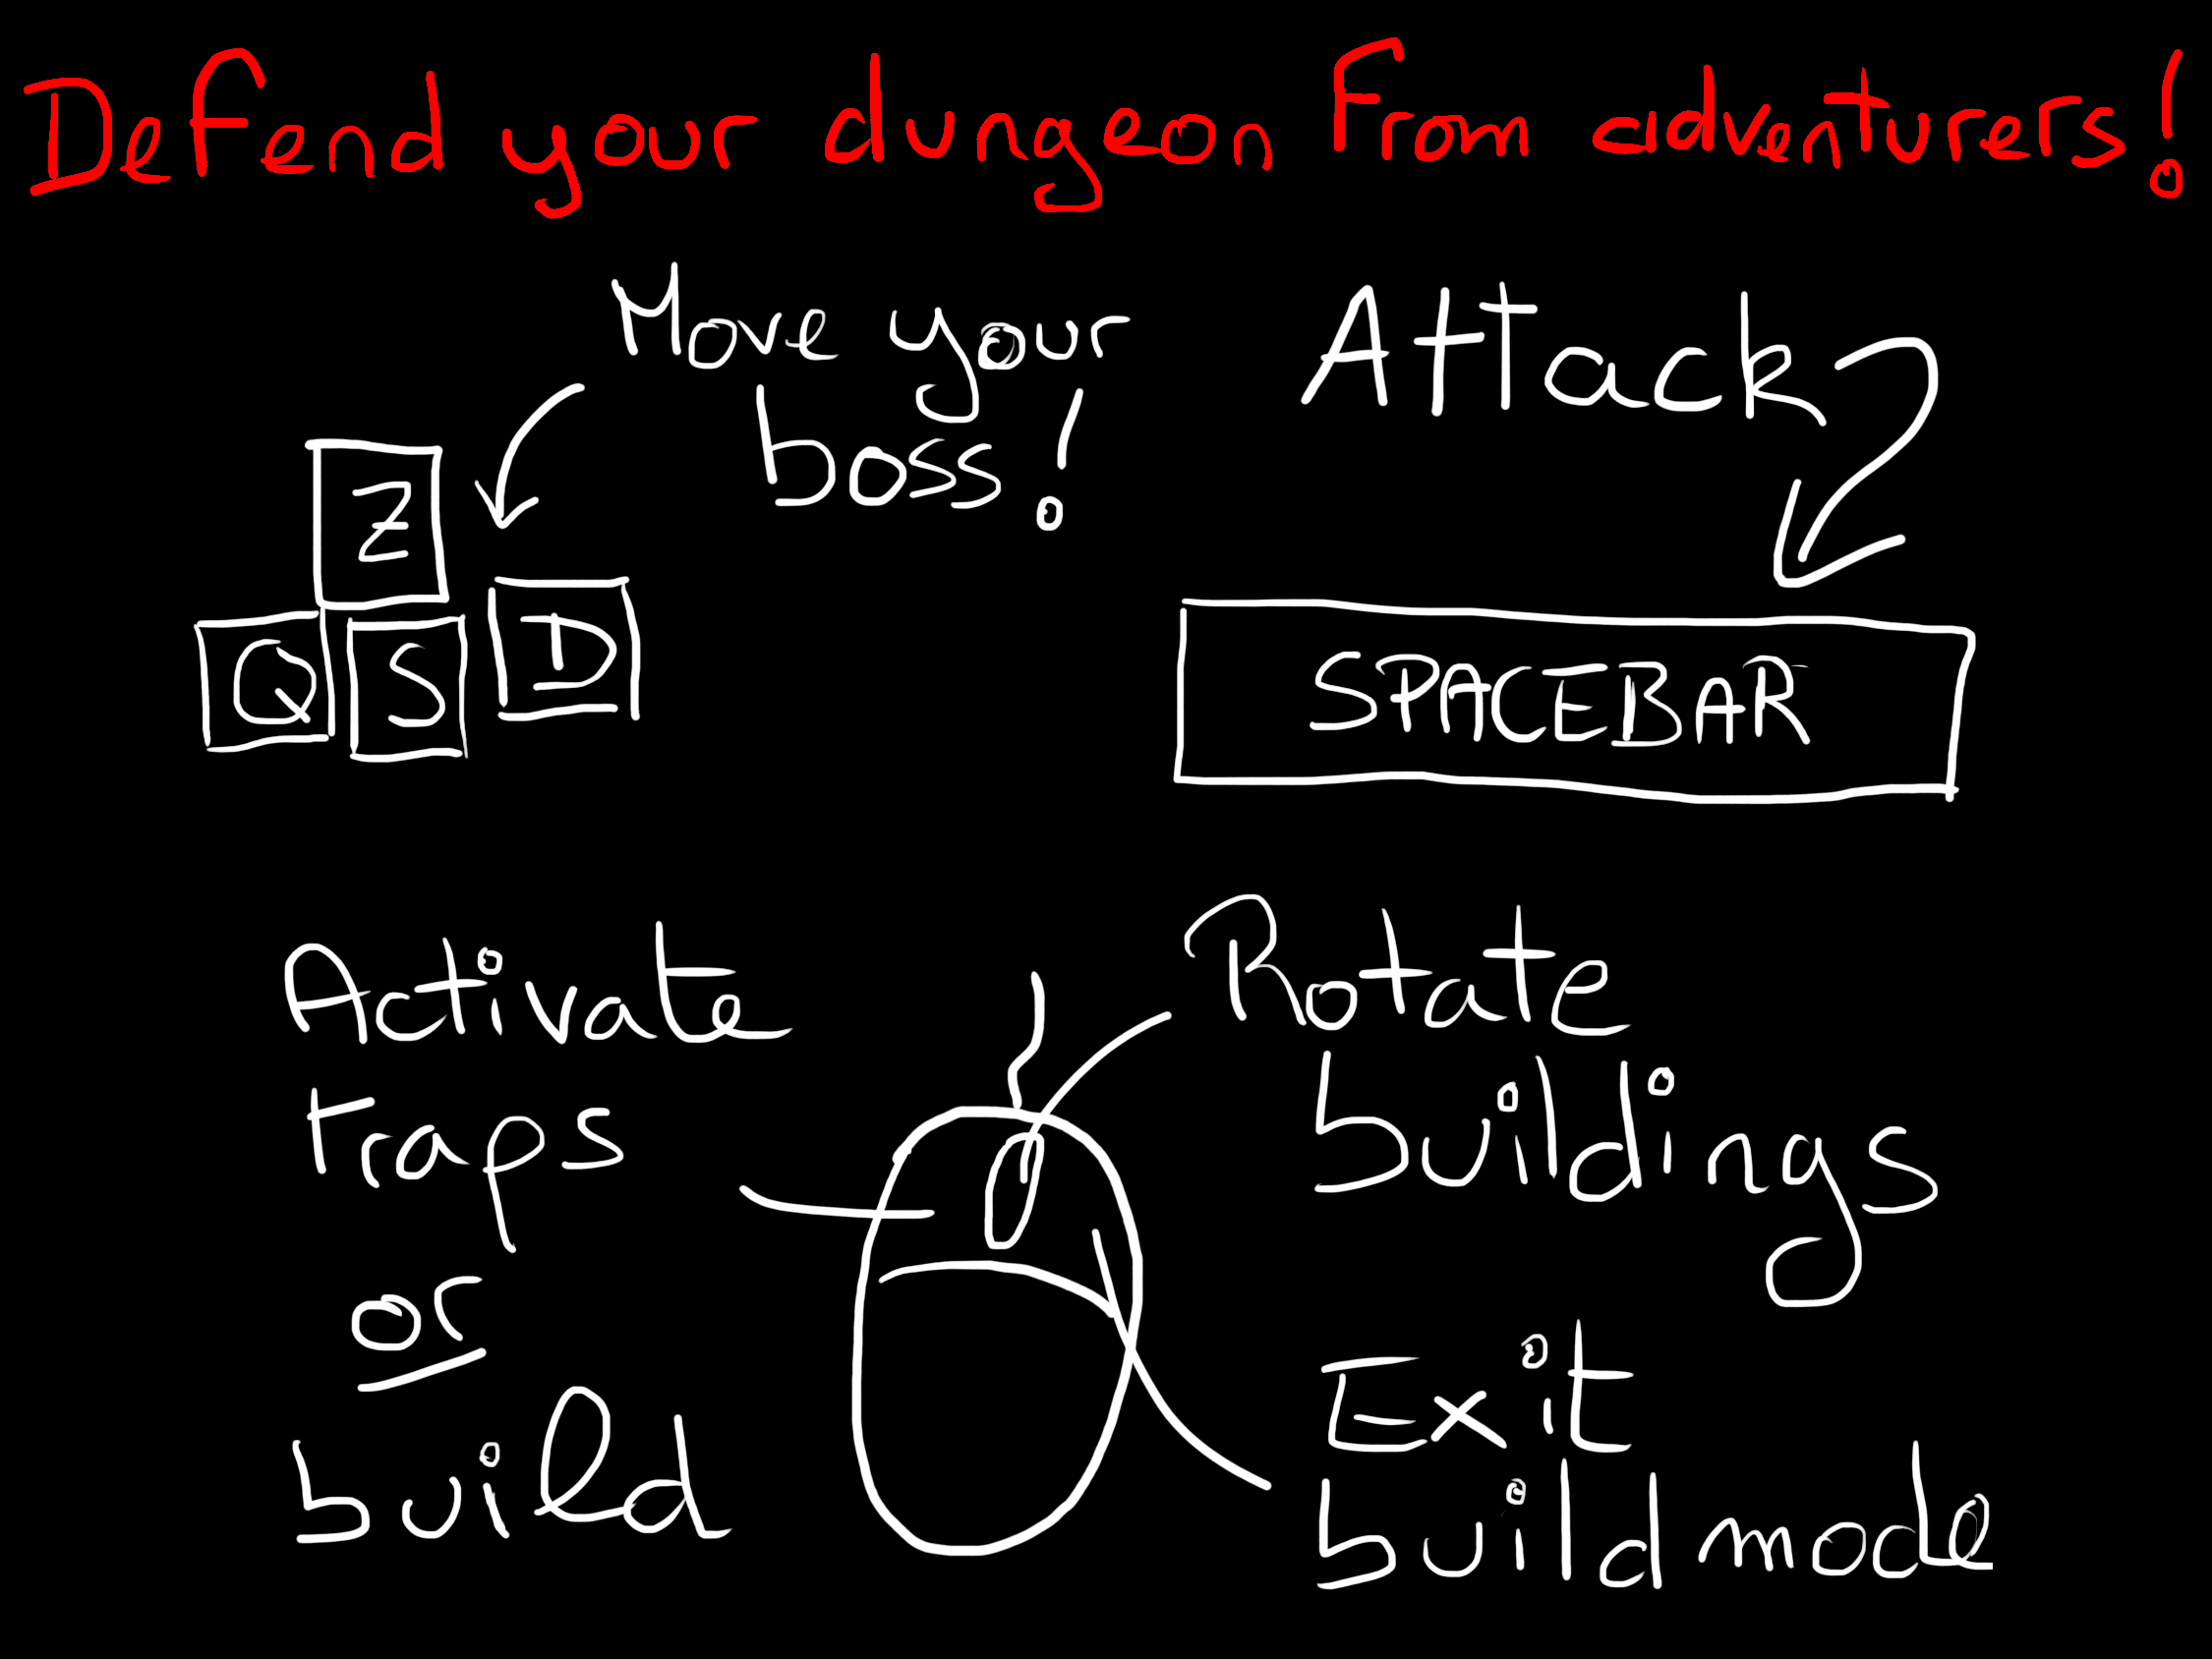 Defend your dungeon from adventurers!
Move your
boss!
Z
Q S D
Attack
SPACEBAR
Activate
traps
or
build
Rotate
buildings
Exit
build mode